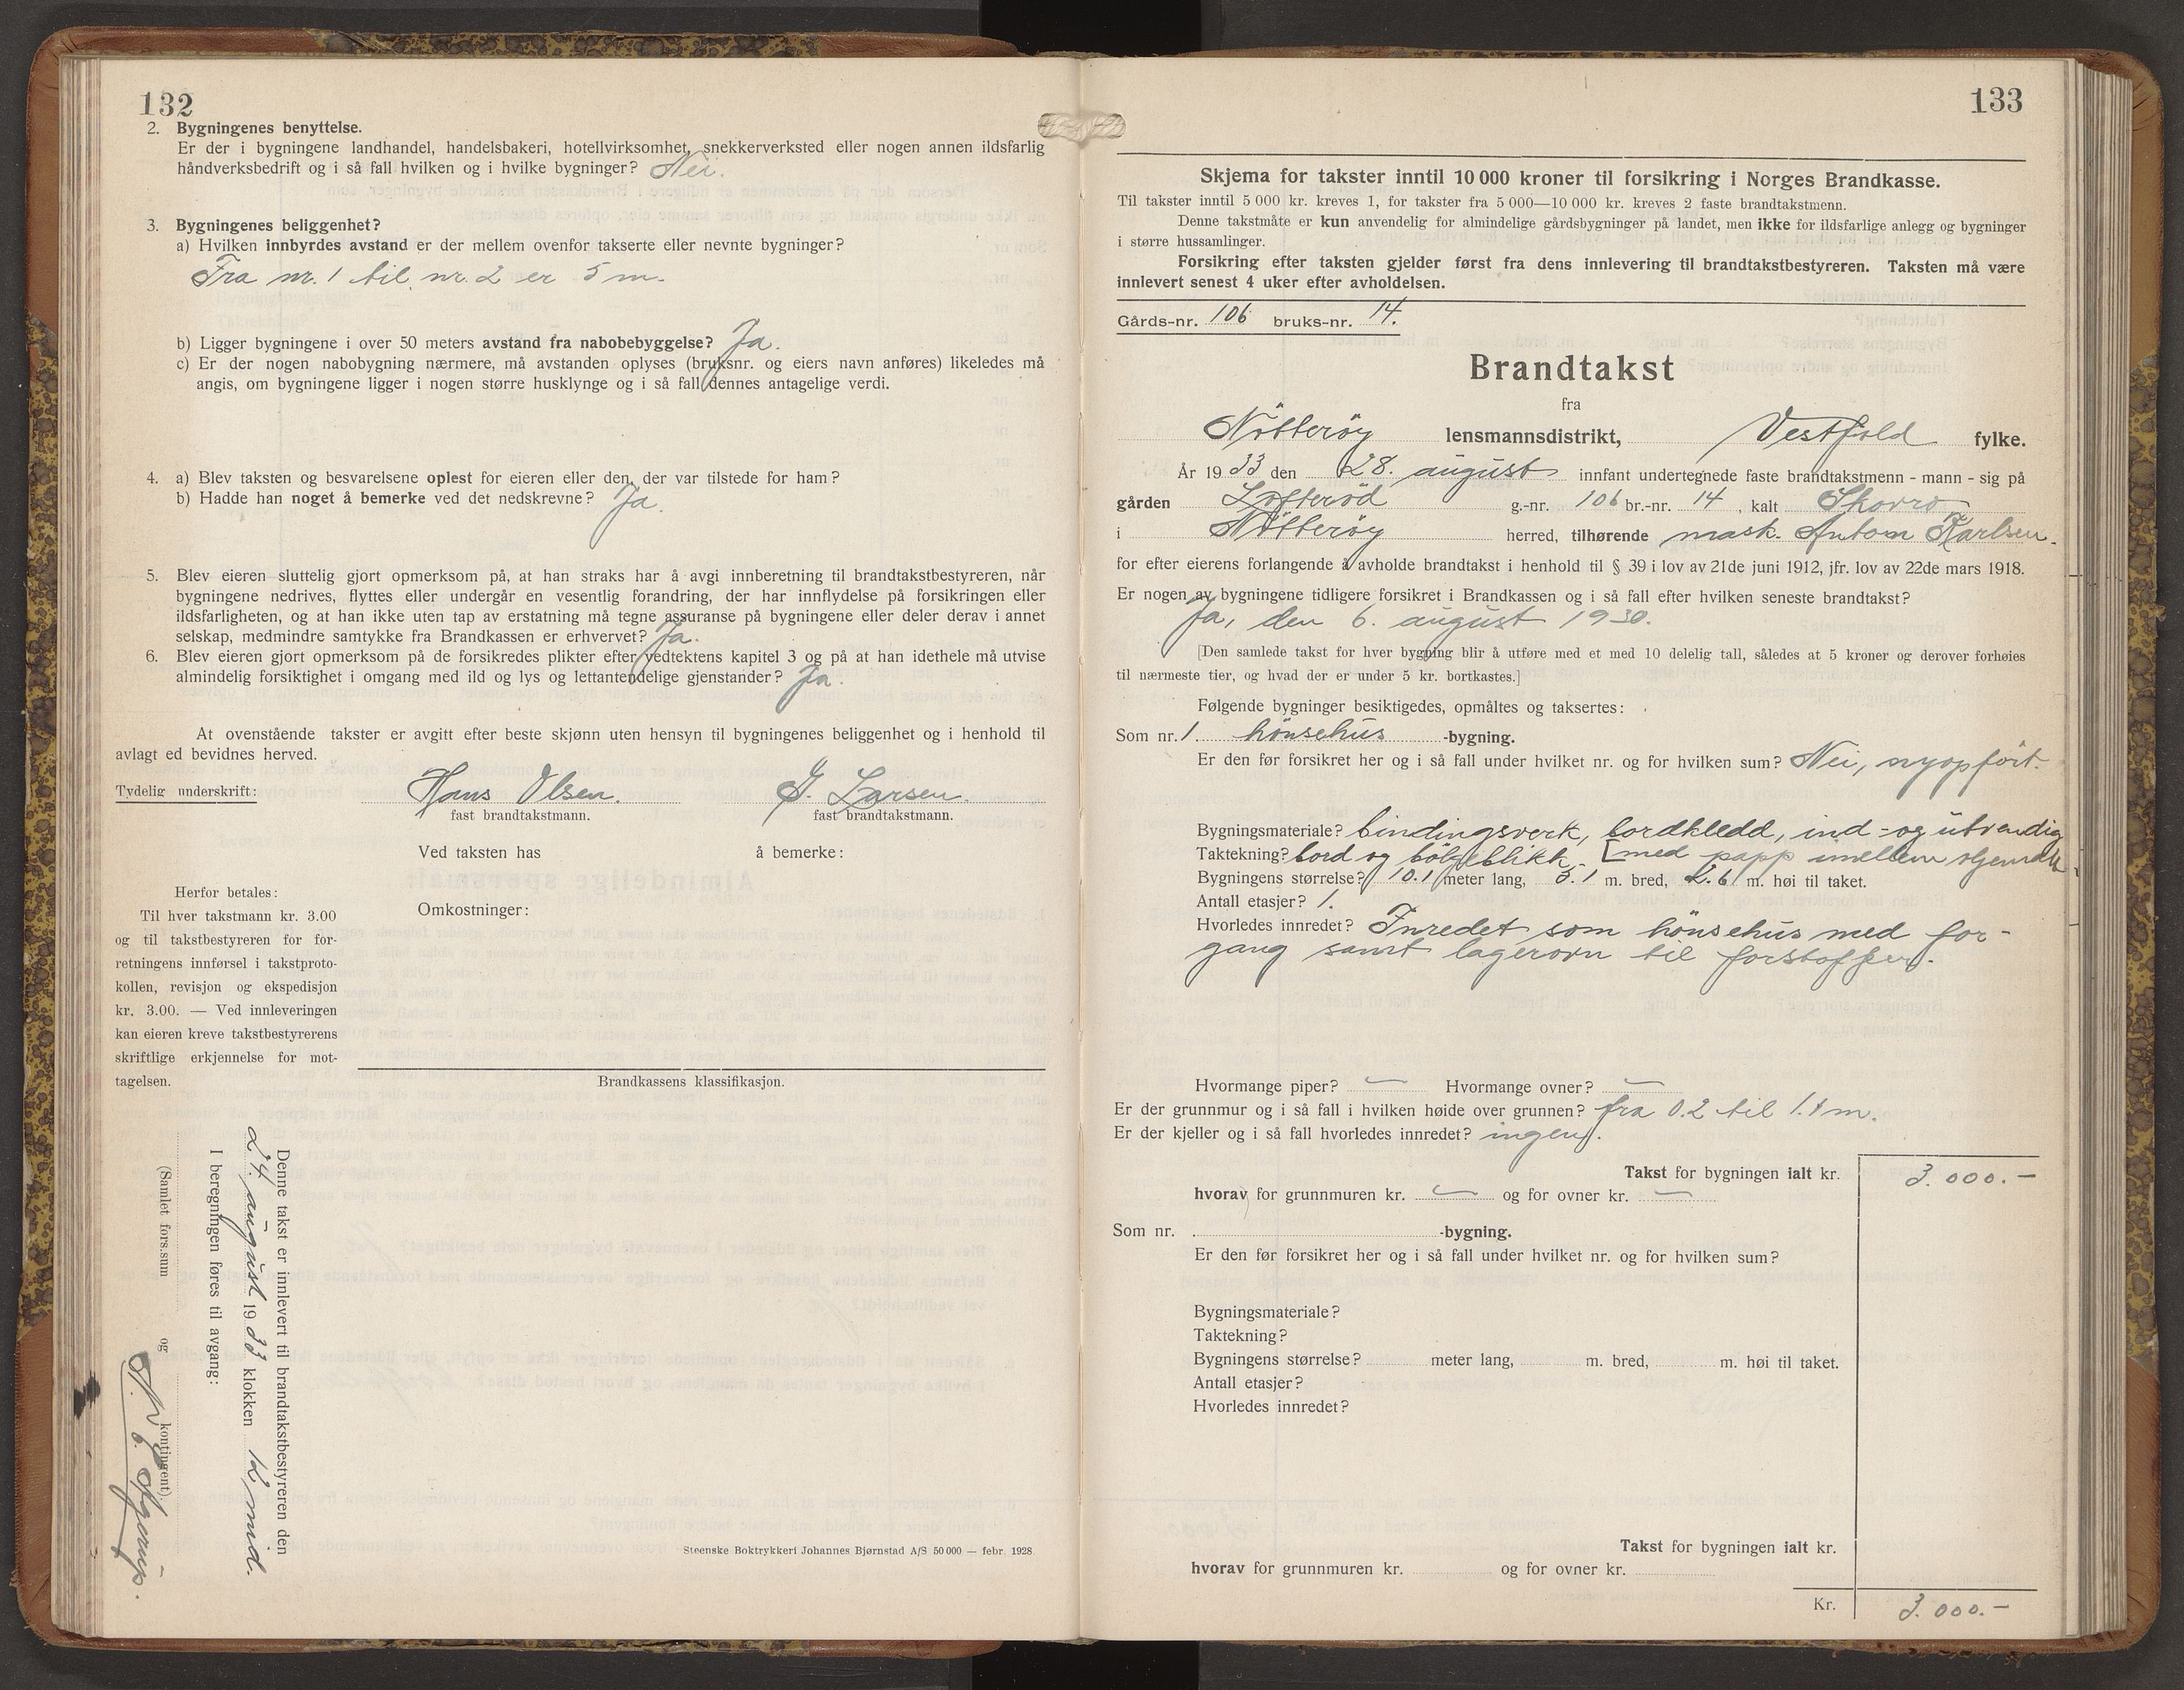 132
2. Bygningenes benyttelse.
Er der i bygningene landhandel, handelsbakeri, hotellvirksomhet, snekkerverksted eller nogen annen ildsfarlig
håndverksbedrift og i så fall hvilken og i hvilke bygninger? Nei.
3. Bygningenes beliggenhet?
a) Hvilken innbyrdes avstand er der mellem ovenfor takserte eller nevnte bygninger?
Fra nr. 1 til nr. 2 er 5 m.
b) Ligger bygningene i over 50 meters avstand fra nabobebyggelse? Ja.
c) Er der nogen nabobygning nærmere, må avstanden oplyses (bruksnr. og eiers navn anføres) likeledes må
angis, om bygningene ligger i nogen større husklynge og i så fall dennes antagelige verdi.
4. a) Blev taksten og besvarelsene oplest for eieren eller den, der var tilstede for ham?
b) Hadde han noget å bemerke ved det nedskrevne? Ja.
5. Blev eieren sluttelig gjort opmerksom på, at han straks har å avgi innberetning til brandtakstbestyreren, når
bygningene nedrives, flyttes eller undergår en vesentlig forandring, der har innflydelse på forsikringen eller
ildsfarligheten, og at han ikke uten tap av erstatning må tegne assuranse på bygningene eller deler derav i annet
selskap, medmindre samtykke fra Brandkassen er erhvervet? Ja.
6. Blev eieren gjort opmerksom på de forsikredes plikter efter vedtektens kapitel 3 og på at han idethele må utvise
almindelig forsiktighet i omgang med ild og lys og lettantendelige gjenstander? Ja.
At ovenstående takster er avgitt efter beste skjønn uten hensyn til bygningenes beliggenhet og i henhold til
avlagt ed bevidnes herved.
Tydelig underskrift: Hans Olsen. G. Larsen.
fast brandtakstmann. fast brandtakstmann.
Ved taksten has å bemerke:
Omkostninger:
Herfor betales:
Til hver takstmann kr. 3.00
og til takstbestyreren for for-
retningens innførsel i takstproto-
kollen, revisjon og ekspedisjon
kr. 3.00. — Ved innleveringen
kan eieren kreve takstbestyrerens
skriftlige erkjennelse for mot-
tagelsen.
Brandkassens klassifikasjon.
Denne takst er innlevert til brandtakstbestyreren den
24. august 1933 klokken 12 mid.
I beregningen føres til avgang:
(Samlet fors.sum og kontingent).
Steenske Boktrykkeri Johannes Bjørnstad A/S 50 000 — febr. 1928.
133
Skjema for takster inntil 10 000 kroner til forsikring i Norges Brandkasse.
Til takster inntil 5 000 kr. kreves 1, for takster fra 5 000—10 000 kr. kreves 2 faste brandtakstmenn.
Denne takstmåte er kun anvendelig for almindelige gårdsbygninger på landet, men ikke for ildsfarlige anlegg og bygninger
i større hussamlinger.
Forsikring efter taksten gjelder først fra dens innlevering til brandtakstbestyreren. Taksten må være
innlevert senest 4 uker efter avholdelsen.
Gårds-nr. 106 bruks-nr. 14.
Brandtakst
fra
Nötteröy lensmannsdistrikt, Vestfold fylke.
År 1933 den 28. august innfant undertegnede faste brandtakstmenn - mann - sig på
gården Lofteröd g.-nr. 106 br.-nr. 14, kalt Skovro
i Nötteröy herred, tilhørende mask. Anton Karlsen.
for efter eierens forlangende å avholde brandtakst i henhold til § 39 i lov av 21de juni 1912, jfr. lov av 22de mars 1918.
Er nogen av bygningene tidligere forsikret i Brandkassen og i så fall efter hvilken seneste brandtakst?
Ja, den 6. august 1930.
[Den samlede takst for hver bygning blir å utføre med et med 10 delelig tall, således at 5 kroner og derover forhøies
til nærmeste tier, og hvad der er under 5 kr. bortkastes.]
Følgende bygninger besiktigedes, opmåltes og taksertes:
Som nr. 1. hönsehus -bygning.
Er den før forsikret her og i så fall under hvilket nr. og for hvilken sum? Nei, nyopfört.
Bygningsmateriale? bindingsverk, bordkledd, ind- og utvendig
Taktekning? bord og bölgeblikk. [med papp imellem
Bygningens størrelse? 10.1 meter lang, 5.1 m. bred, 2.6 m. høi til taket.
Antall etasjer? 1.
Hvorledes innredet? Inredet som hönsehus med for-
gang samt lagerovn til forstoffer.
Hvormange piper? — Hvormange ovner? —
Er der grunnmur og i så fall i hvilken høide over grunnen? fra 0.2 til 1.1 m.
Er der kjeller og i så fall hvorledes innredet? ingen.
Takst for bygningen ialt kr. 3.000.-
hvorav for grunnmuren kr. — og for ovner kr. —
Som nr. -bygning.
Er den før forsikret her og i så fall under hvilket nr. og for hvilken sum?
Bygningsmateriale?
Taktekning?
Bygningens størrelse? meter lang, m. bred, m. høi til taket.
Antall etasjer?
Hvorledes innredet?
Takst for bygningen ialt kr.
hvorav for grunnmuren kr. og for ovner kr.
Kr. 3.000.-